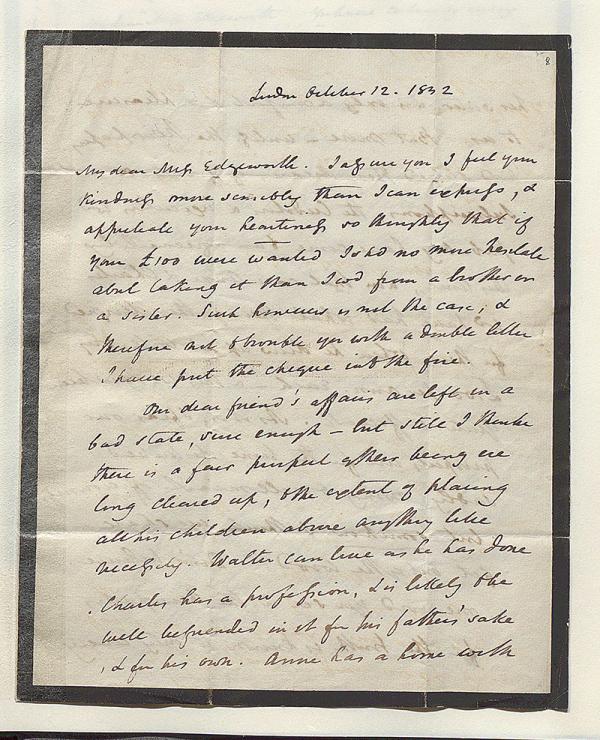 8
London October 12. 1832
My dear Miss Edgeworth. I assure you I feel your
kindness more sensibly than I can express, &
appreciate your heartiness so thoroughly that if
your £100 were wanted I shd no more hesitate
about taking it than I wod from a brother or
a sister. Such however is not the case; &
therefore not to trouble you with a double letter
I have put the cheque into the fire.
Our dear friend's affairs are left in a
bad state, sure enough - but still I think
there is a fair prospect of their being ere
long cleared up, to the extent of placing
all his children above anything like
necessity. Walter can live as he has done
. Charles has a profession, & is likely to be
well befriended in it for his father's sake
, & for his own. Anne has a home with